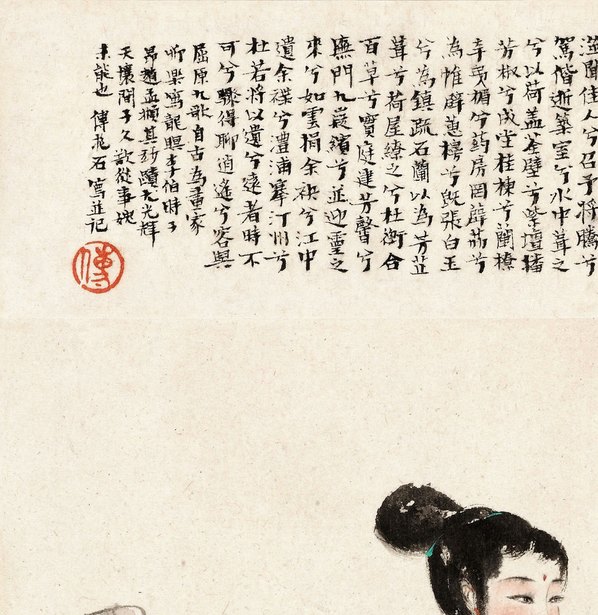 澨聞佳人兮召予将騰兮
駕偕逝築室兮水中葺之
兮以荷盖荃壁兮紫壇播
芳椒兮成堂桂棟兮蘭橑
辛夷楣兮药房罔薜荔兮
為帷擗蕙櫋兮既張白玉
兮為鎮疏石蘭以為芳芷
葺兮荷屋繚之兮杜衡合
百草兮實庭建芳馨兮
廡門九嶷繽兮並迎靈之
來兮如雲捐余袂兮江中
遺余褋兮澧浦搴汀州兮
杜若将以遺兮遠者時不
可兮驟得聊逍遙兮容與
屈原九歌自古為畫家
所樂寫龍眠李伯時子
昂趙孟頫其妙蹟尤光輝
天壤間予久欲從事愧
未能也 傅抱石寫並記
傅